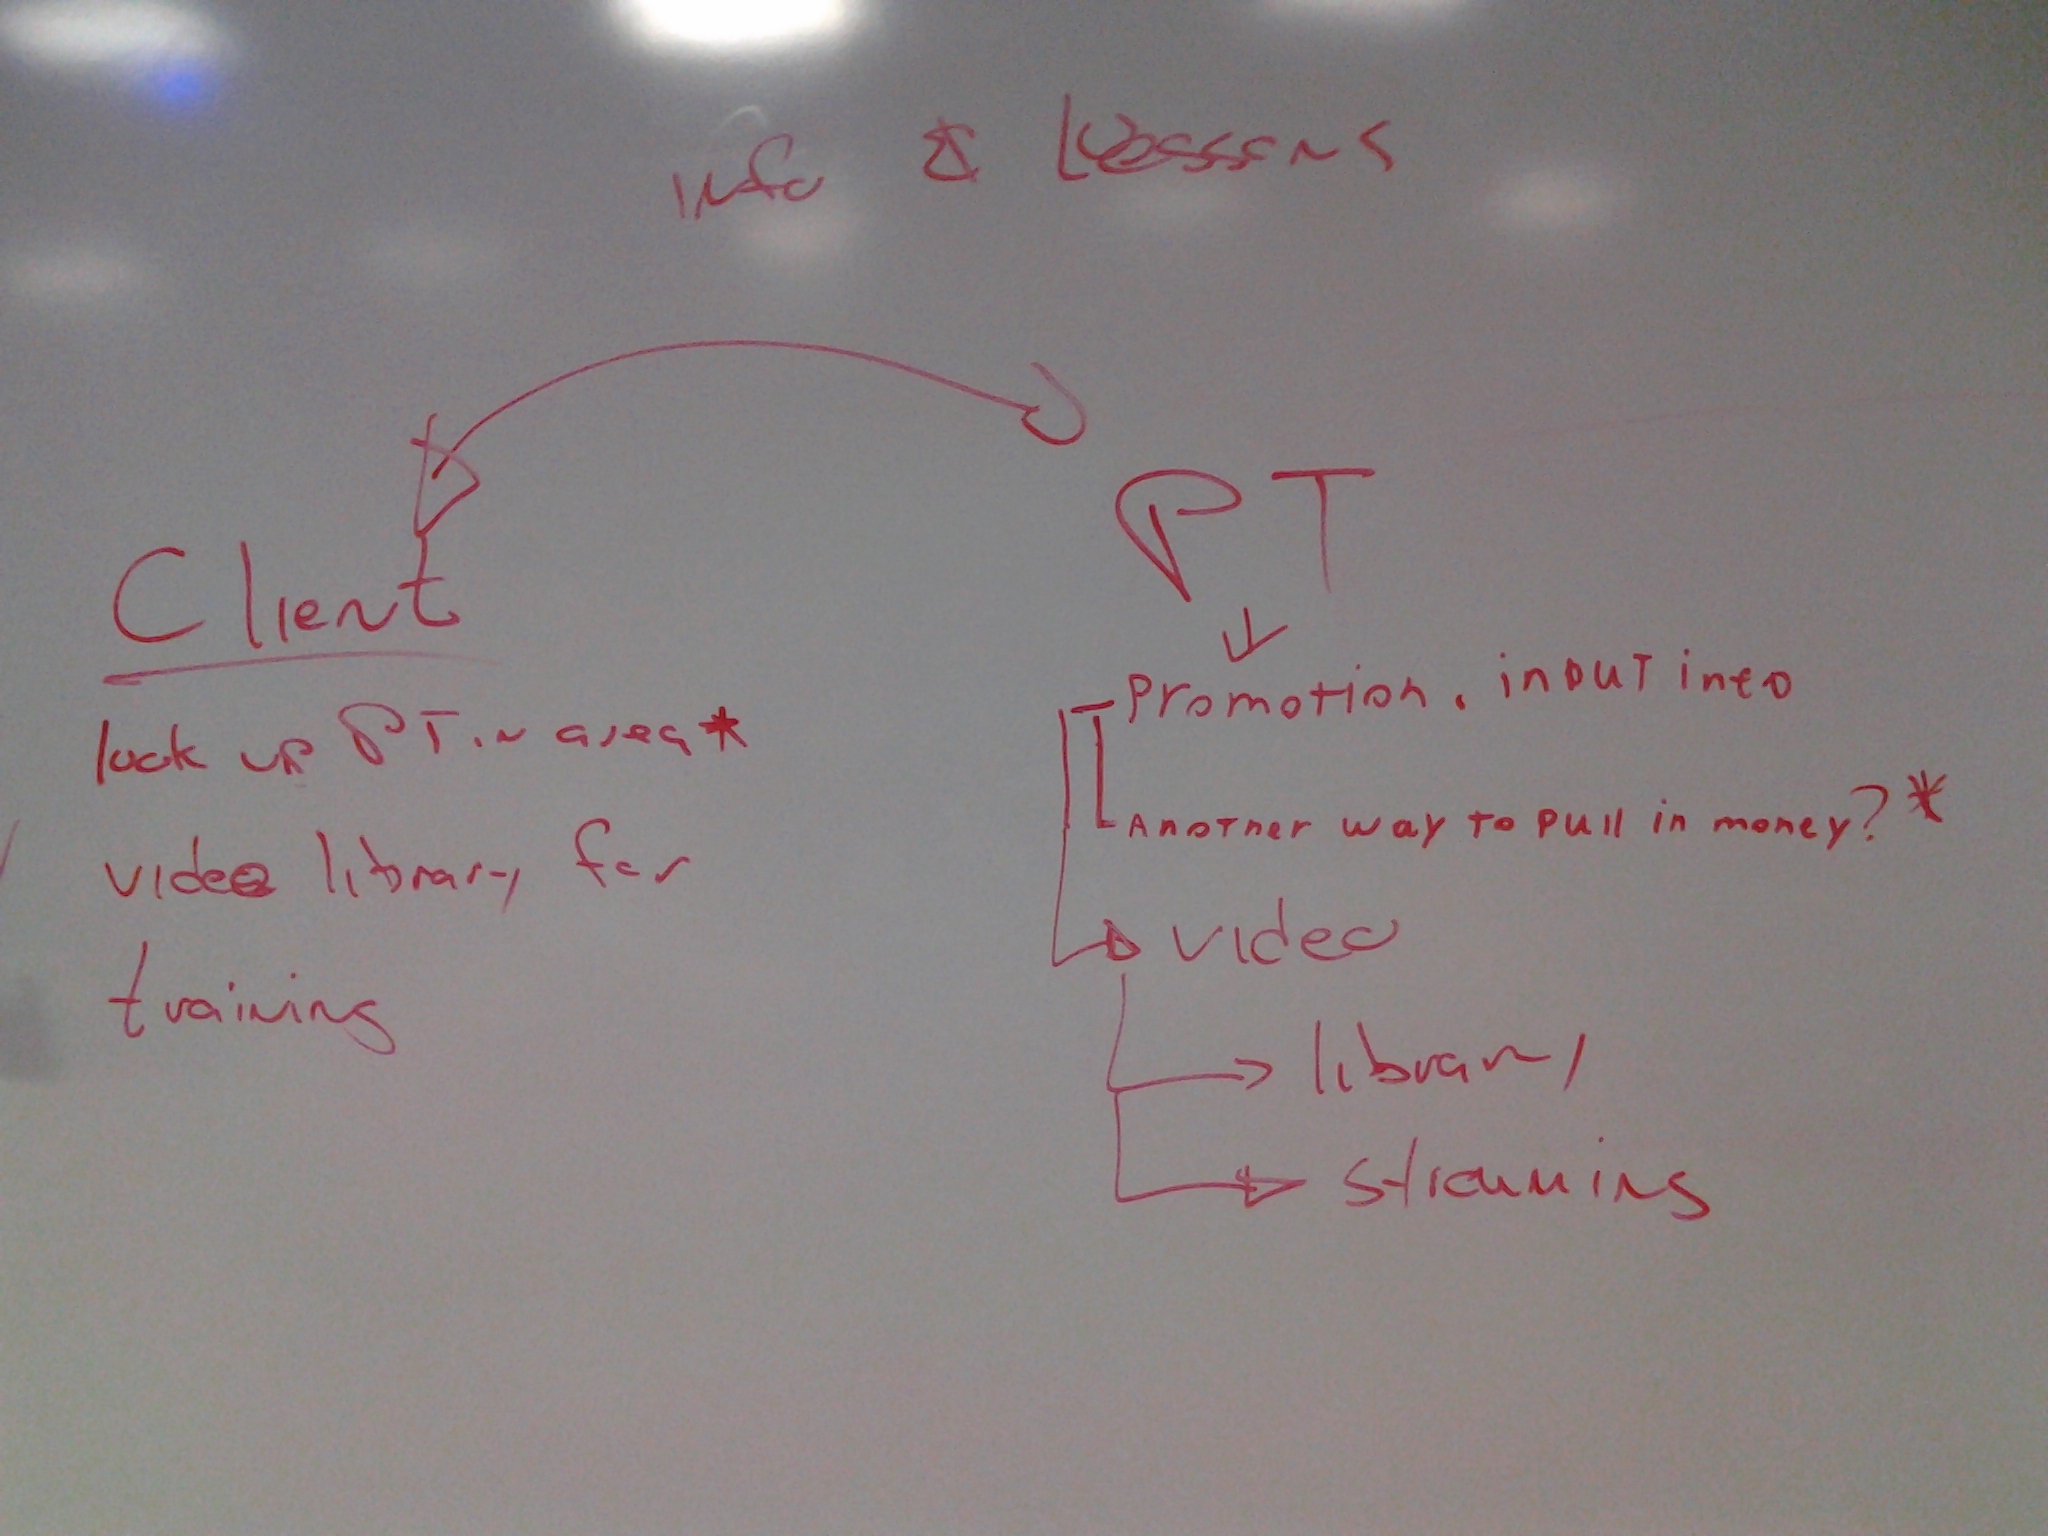 info & Lessons
Client
look up PT in area*
video library for
training
PT
Promotion. input info
Another way to pull in money? *
video
library
streaming